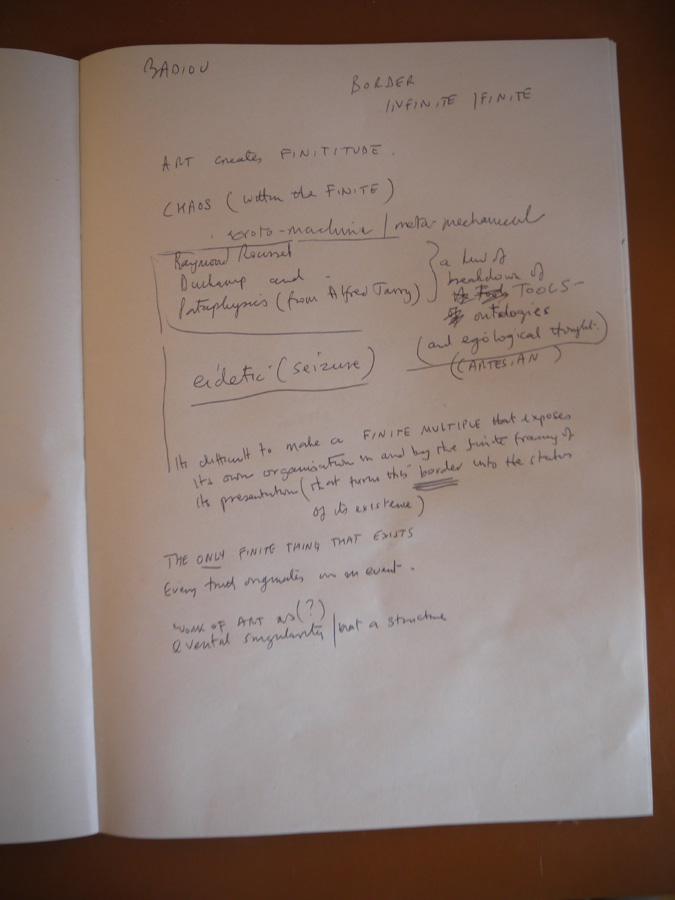 BADIOU
BORDER
INFINITE / FINITE
ART creates FINITITUDE.
CHAOS (within the FINITE)
proto-machine / meta-mechanical
Raymond Roussel
Duchamp and
Pataphysics (from Alfred Jarry)
a kind of
breakdown of
TOOLS –
ontologies
(and egological thought.
(CARTESIAN)
eidetic (seizure)
Its difficult to make a FINITE MULTIPLE that exposes
its own organisation in and by the finite framing of
its presentation (that turns this border into the status
of its existence)
THE ONLY FINITE THING THAT EXISTS
Every truth originates in an event.
WORK OF ART as (?)
Evental singularity / not a structure